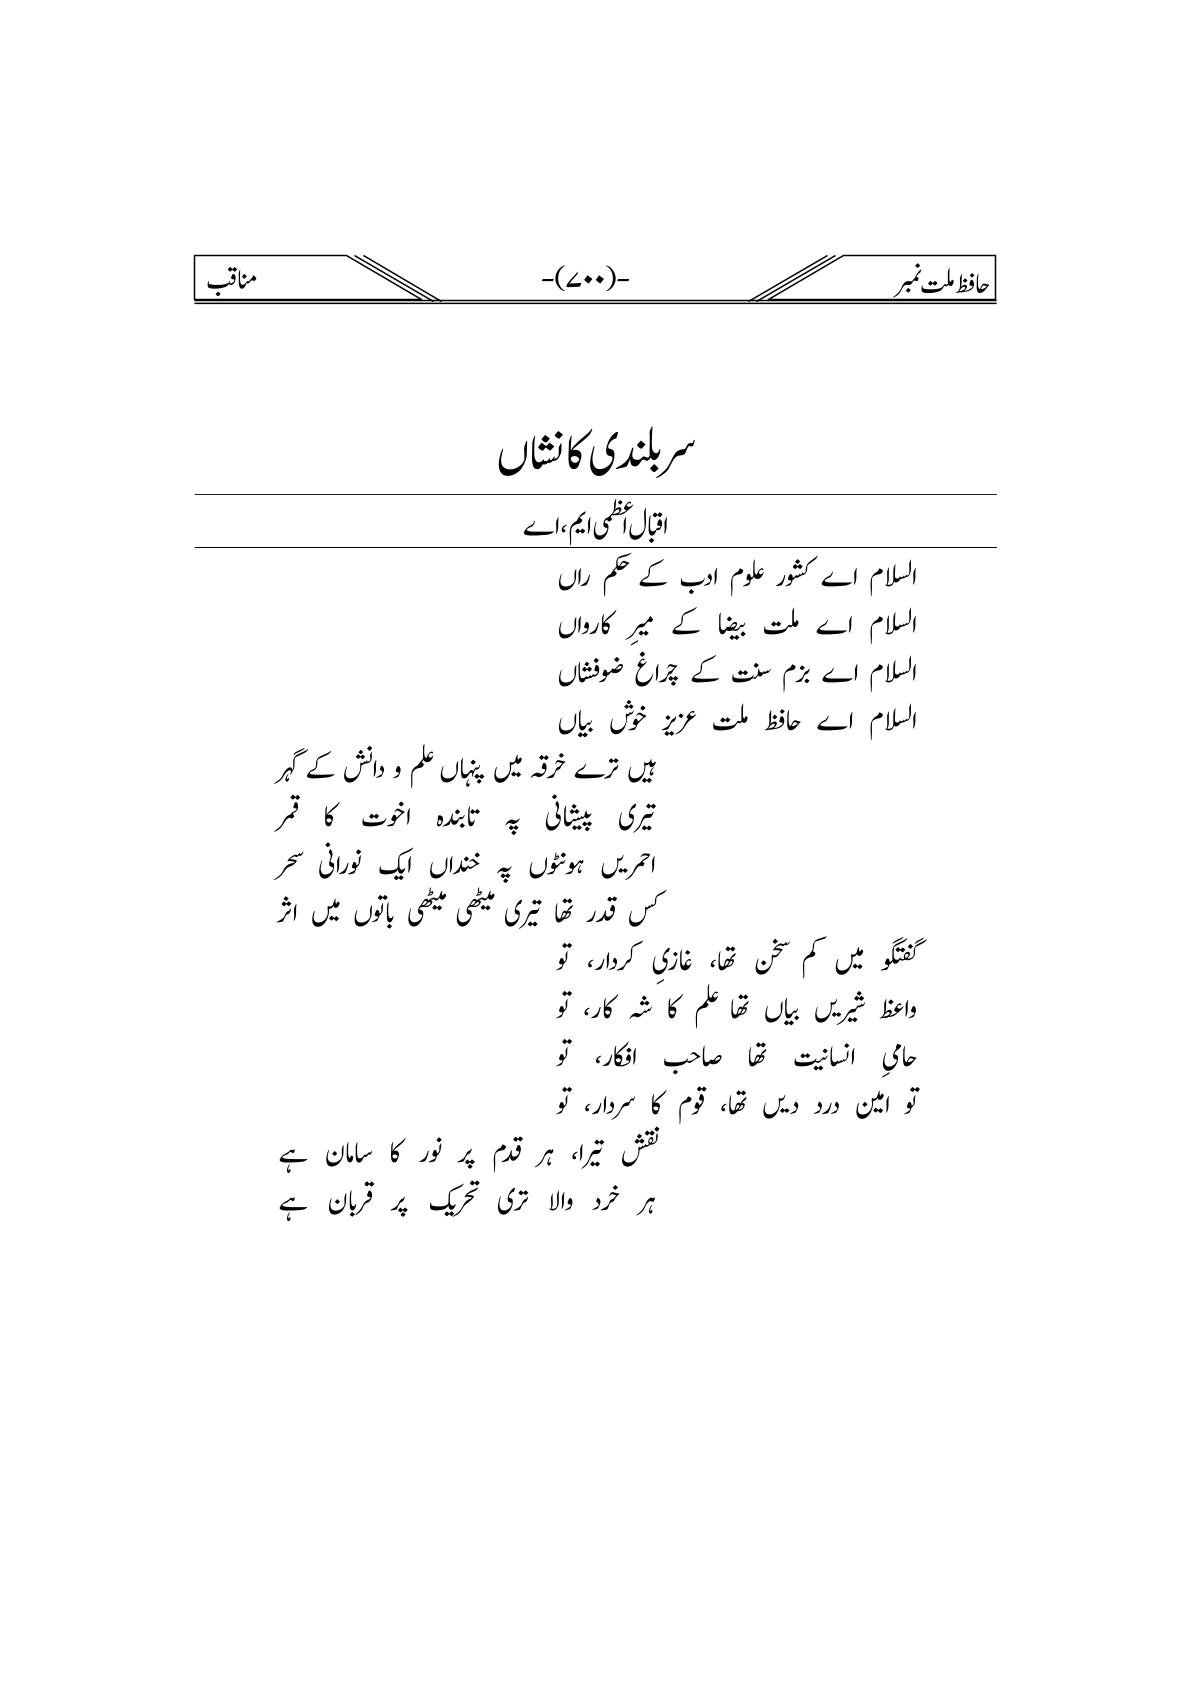 حافظ ملت نمبر -(۷۰۰)- مناقب
سر بلندی کا نشاں
اقبال اعظمی ایم، اے
السلام اے کشور علوم ادب کے حکم راں
السلام اے ملت بیضا کے میرِ کارواں
السلام اے بزم سنت کے چراغ ضوفشاں
السلام اے حافظ ملت عزیز خوش بیاں
ہیں ترے خرقہ میں پنہاں علم و دانش کے گہر
تیری پیشانی پہ تابندہ اخوت کا قمر
احمریں ہونٹوں پہ خنداں ایک نورانی سحر
کس قدر تھا تیری میٹھی میٹھی باتوں میں اثر
گفتگو میں کم سخن تھا، غازیِ کردار، تو
واعظ شیریں بیاں تھا علم کا شہ کار، تو
حامیِ انسانیت تھا صاحب افکار، تو
تو امین درد دیں تھا، قوم کا سردار، تو
نقش تیرا، ہر قدم پر نور کا سامان ہے
ہر خرد والا تری تحریک پر قربان ہے